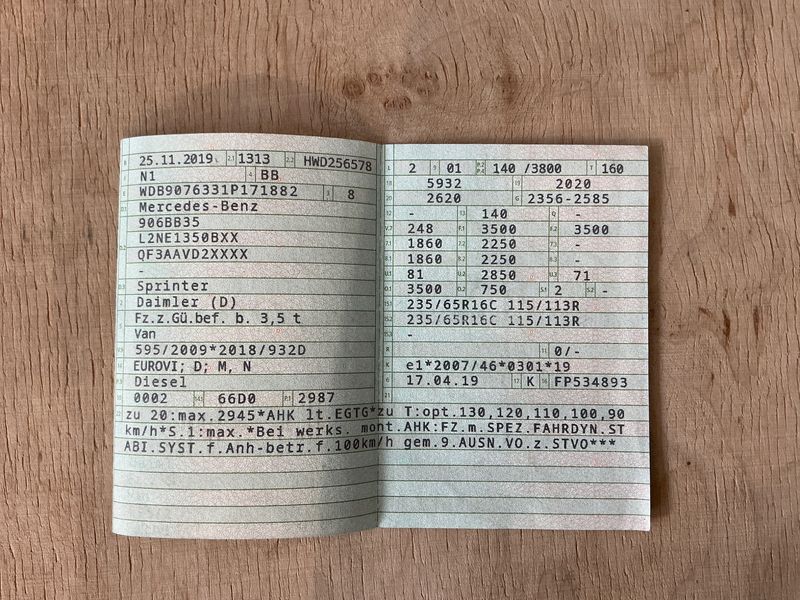 B 25.11.2019 2.1 1313 2.2 HWD256578
J N1 4 BB
E WDB9076331P171882 3 8
D.1 Mercedes-Benz
906BB35
D.2 L2NE1350BXX
QF3AAVD2XXXX
-
D.3 Sprinter
2 Daimler (D)
5 Fz.z.Gü.bef. b. 3,5 t
Van
V.9 595/2009*2018/932D
14 EUROVI; D; M, N
P.3 Diesel
10 0002 14.1 66D0 P.1 2987
L 2 9 01 P.2 P.4 140 /3800 T 160
18 5932 19 2020
20 2620 G 2356-2585
12 - 13 140 Q -
V.7 248 F.1 3500 F.2 3500
7.1 1860 7.2 2250 7.3 -
8.1 1860 8.2 2250 8.3 -
U.1 81 U.2 2850 U.3 71
O.1 3500 O.2 750 S.1 2 S.2 -
15.1 235/65R16C 115/113R
15.2 235/65R16C 115/113R
15.3 -
R 11 0/-
K e1*2007/46*0301*19
6 17.04.19 17 K 16 FP534893
21
22 zu 20:max.2945*AHK lt.EGTG*zu T:opt.130,120,110,100,90
km/h*S.1:max.*Bei werks. mont.AHK:FZ.m.SPEZ.FAHRDYN.ST
ABI.SYST.f.Anh-betr.f.100km/h gem.9.AUSN.VO.z.STVO***